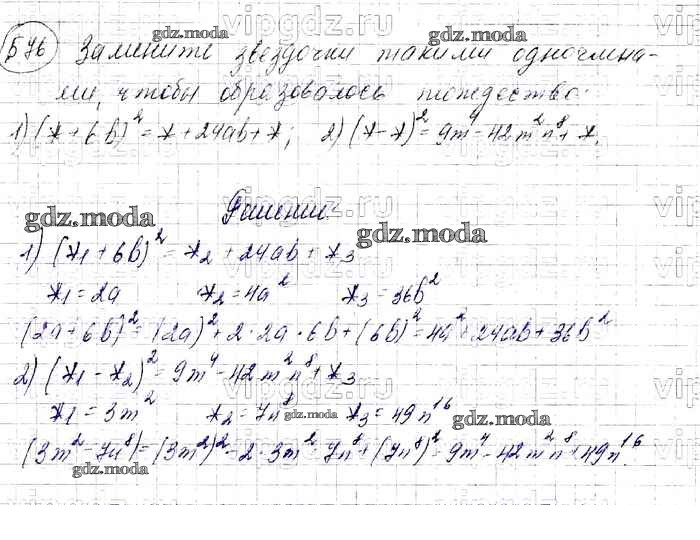 576 Замените звездочки такими одночлена-
ми, чтобы образовалось тождество:
1) (* + 6b)² = * + 24ab + *; 2) (* - *)² = 9m⁴ - 42m²n⁸ + *.
Решение:
1) (*₁ + 6b)² = *₂ + 24ab + *₃
*₁ = 2a *₂ = 4a² *₃ = 36b²
(2a + 6b)² = (2a)² + 2·2a·6b + (6b)² = 4a² + 24ab + 36b²
2) (*₁ - *₂)² = 9m⁴ - 42m²n⁸ + *₃
*₁ = 3m² *₂ = 7n⁸ *₃ = 49n¹⁶
(3m² - 7n⁸) = (3m²)² - 2·3m²·7n⁸ + (7n⁸)² = 9m⁴ - 42m²n⁸ + 49n¹⁶.
gdz.moda
vipgdz.ru